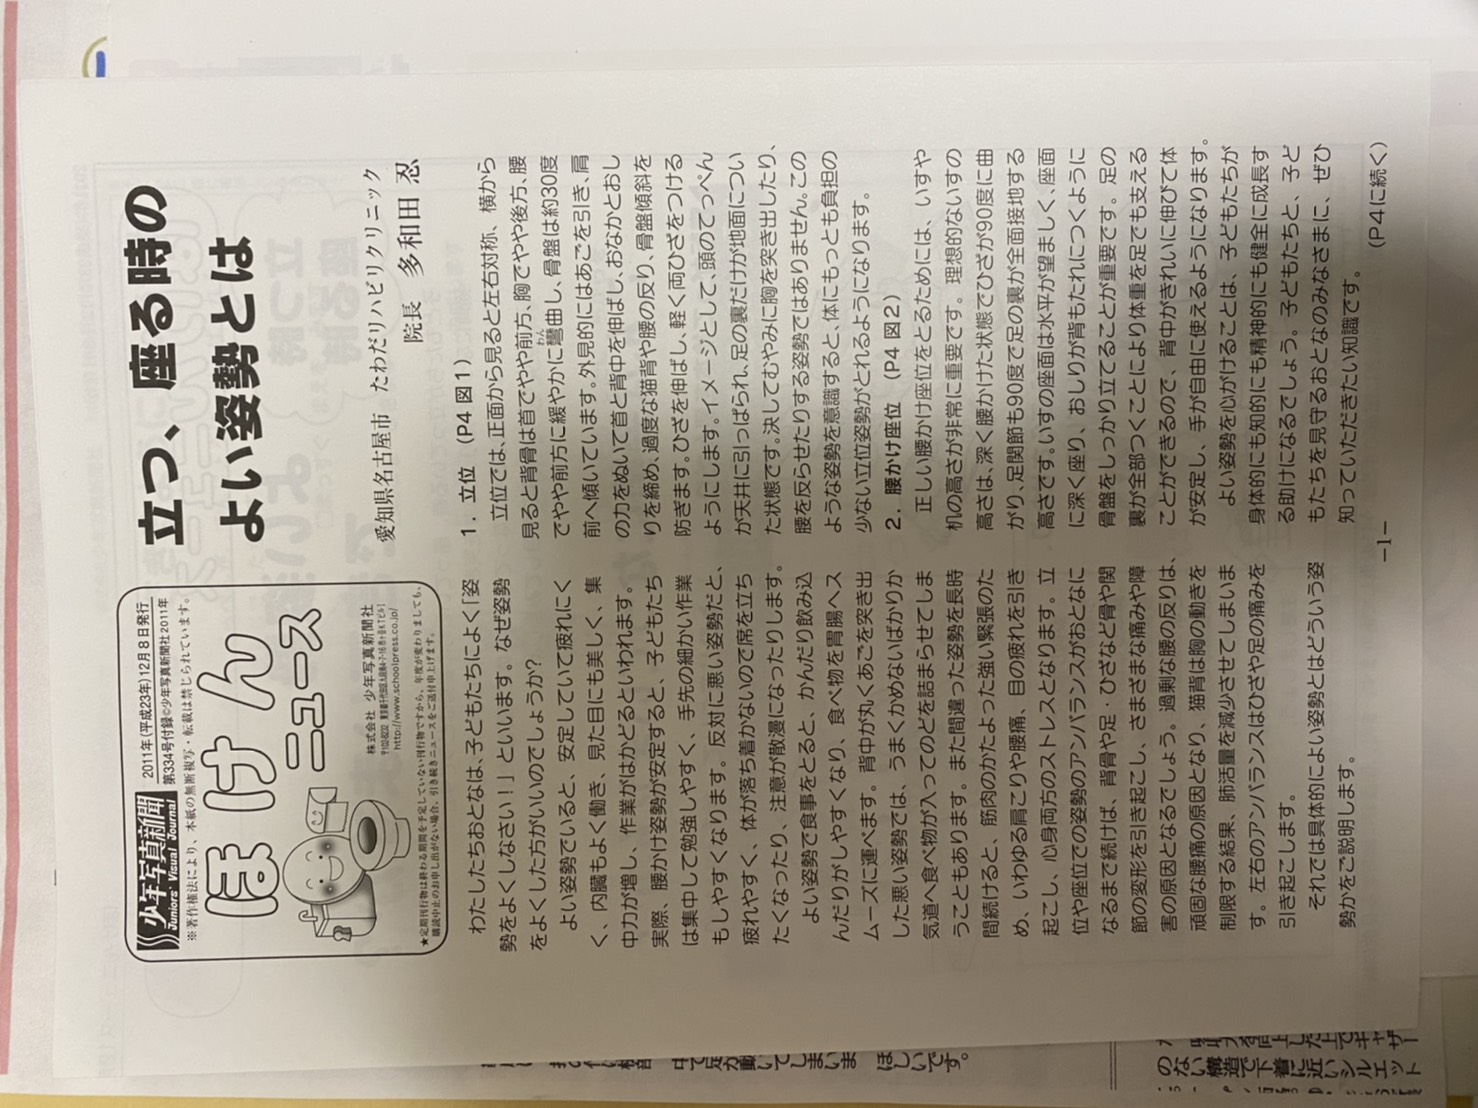 少年写真新聞
Juniors' Visual Journal
2011年(平成23年)12月8日発行
第334号付録©少年写真新聞社2011年
※著作権法により、本紙の無断複写・転載は禁じられています。
ほけん
ニュース
株式会社 少年写真新聞社
http://www.schoolpress.co.jp/
★定期刊行物は終わる期間を予定していない刊行物ですから、年度が変わりましても、
購読中止のお申し出がない場合、引き続きニュースをご送付申し上げます。
立つ、座る時の
よい姿勢とは
愛知県名古屋市 たわだリハビリクリニック
院長 多和田 忍
わたしたちおとなは、子どもたちによく「姿
勢をよくしなさい!」といいます。なぜ姿勢
をよくした方がいいのでしょうか?
よい姿勢でいると、安定していて疲れにく
く、内臓もよく働き、見た目にも美しく、集
中力が増し、作業がはかどるといわれます。
実際、腰かけ姿勢が安定すると、子どもたち
は集中して勉強しやすく、手先の細かい作業
もしやすくなります。反対に悪い姿勢だと、
疲れやすく、体が落ち着かないので席を立ち
たくなったり、注意が散漫になったりします。
よい姿勢で食事をとると、かんだり飲み込
んだりがしやすくなり、食べ物を胃腸へス
ムーズに運べます。背中が丸くあごを突き出
した悪い姿勢では、うまくかめないばかりか
気道へ食べ物が入ってのどを詰まらせてしま
うこともあります。また間違った姿勢を長時
間続けると、筋肉のかたよった強い緊張のた
め、いわゆる肩こりや腰痛、目の疲れを引き
起こし、心身両方のストレスとなります。立
位や座位での姿勢のアンバランスがおとなに
なるまで続けば、背骨や足・ひざなど骨や関
節の変形を引き起こし、さまざまな痛みや障
害の原因となるでしょう。過剰な腰の反りは、
頑固な腰痛の原因となり、猫背は胸の動きを
制限する結果、肺活量を減少させてしまいま
す。左右のアンバランスはひざや足の痛みを
引き起こします。
それでは具体的によい姿勢とはどういう姿
勢かをご説明します。
1.立位 (P4 図1)
立位では、正面から見ると左右対称、横から
見ると背骨は首でやや前方、胸でやや後方、腰
でやや前方に緩やかに彎曲し、骨盤は約30度
わん
前へ傾いています。外見的にはあごを引き、肩
の力をぬいて首と背中を伸ばし、おなかとおし
りを締め、過度な猫背や腰の反り、骨盤傾斜を
防ぎます。ひざを伸ばし、軽く両ひざをつける
ようにします。イメージとして、頭のてっぺん
が天井に引っぱられ、足の裏だけが地面につい
た状態です。決してむやみに胸を突き出したり、
腰を反らせたりする姿勢ではありません。この
ような姿勢を意識すると、体にもっとも負担の
少ない立位姿勢がとれるようになります。
2.腰かけ座位 (P4 図2)
正しい腰かけ座位をとるためには、いすや
机の高さが非常に重要です。理想的ないすの
高さは、深く腰かけた状態でひざが90度に曲
がり、足関節も90度で足の裏が全面接地する
高さです。いすの座面は水平が望ましく、座面
に深く座り、おしりが背もたれにつくように
骨盤をしっかり立てることが重要です。足の
裏が全部つくことにより体重を足でも支える
ことができるので、背中がきれいに伸びて体
が安定し、手が自由に使えるようになります。
よい姿勢を心がけることは、子どもたちが
身体的にも知的にも精神的にも健全に成長す
る助けになるでしょう。子どもたちと、子ど
もたちを見守るおとなのみなさまに、ぜひ
知っていただきたい知識です。
(P4に続く)
−1−
ほしいです。
のない構造で下着に近いシルエット